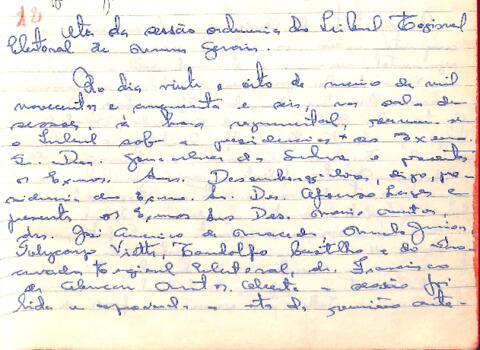 18
Ata da sessão ordinaria do Tribunal Regional
Eleitoral de Minas Gerais.
Ao dia vinte e oito de maio de mil
novecentos e cinquenta e seis, na sala de
sessões, à hora regimental, reuniu-se
o Tribunal sob a presidencia do Exmo.
Sr. Des. Gonçalves da Silva e presentes
os Exmos. Srs. Desembargadores, digo, pre-
sidencia do Exmo. Sr. Des. Afonso Lages e
presentes os Exmos Srs Des. Mario
drs. José Americo de Macedo,
Policarpo Viotti, Castilho e do Pro-
curador Regional Eleitoral, dr. Francisco
de Alencar. Aberta a sessão foi
lida e aprovada a ata da reunião ante-